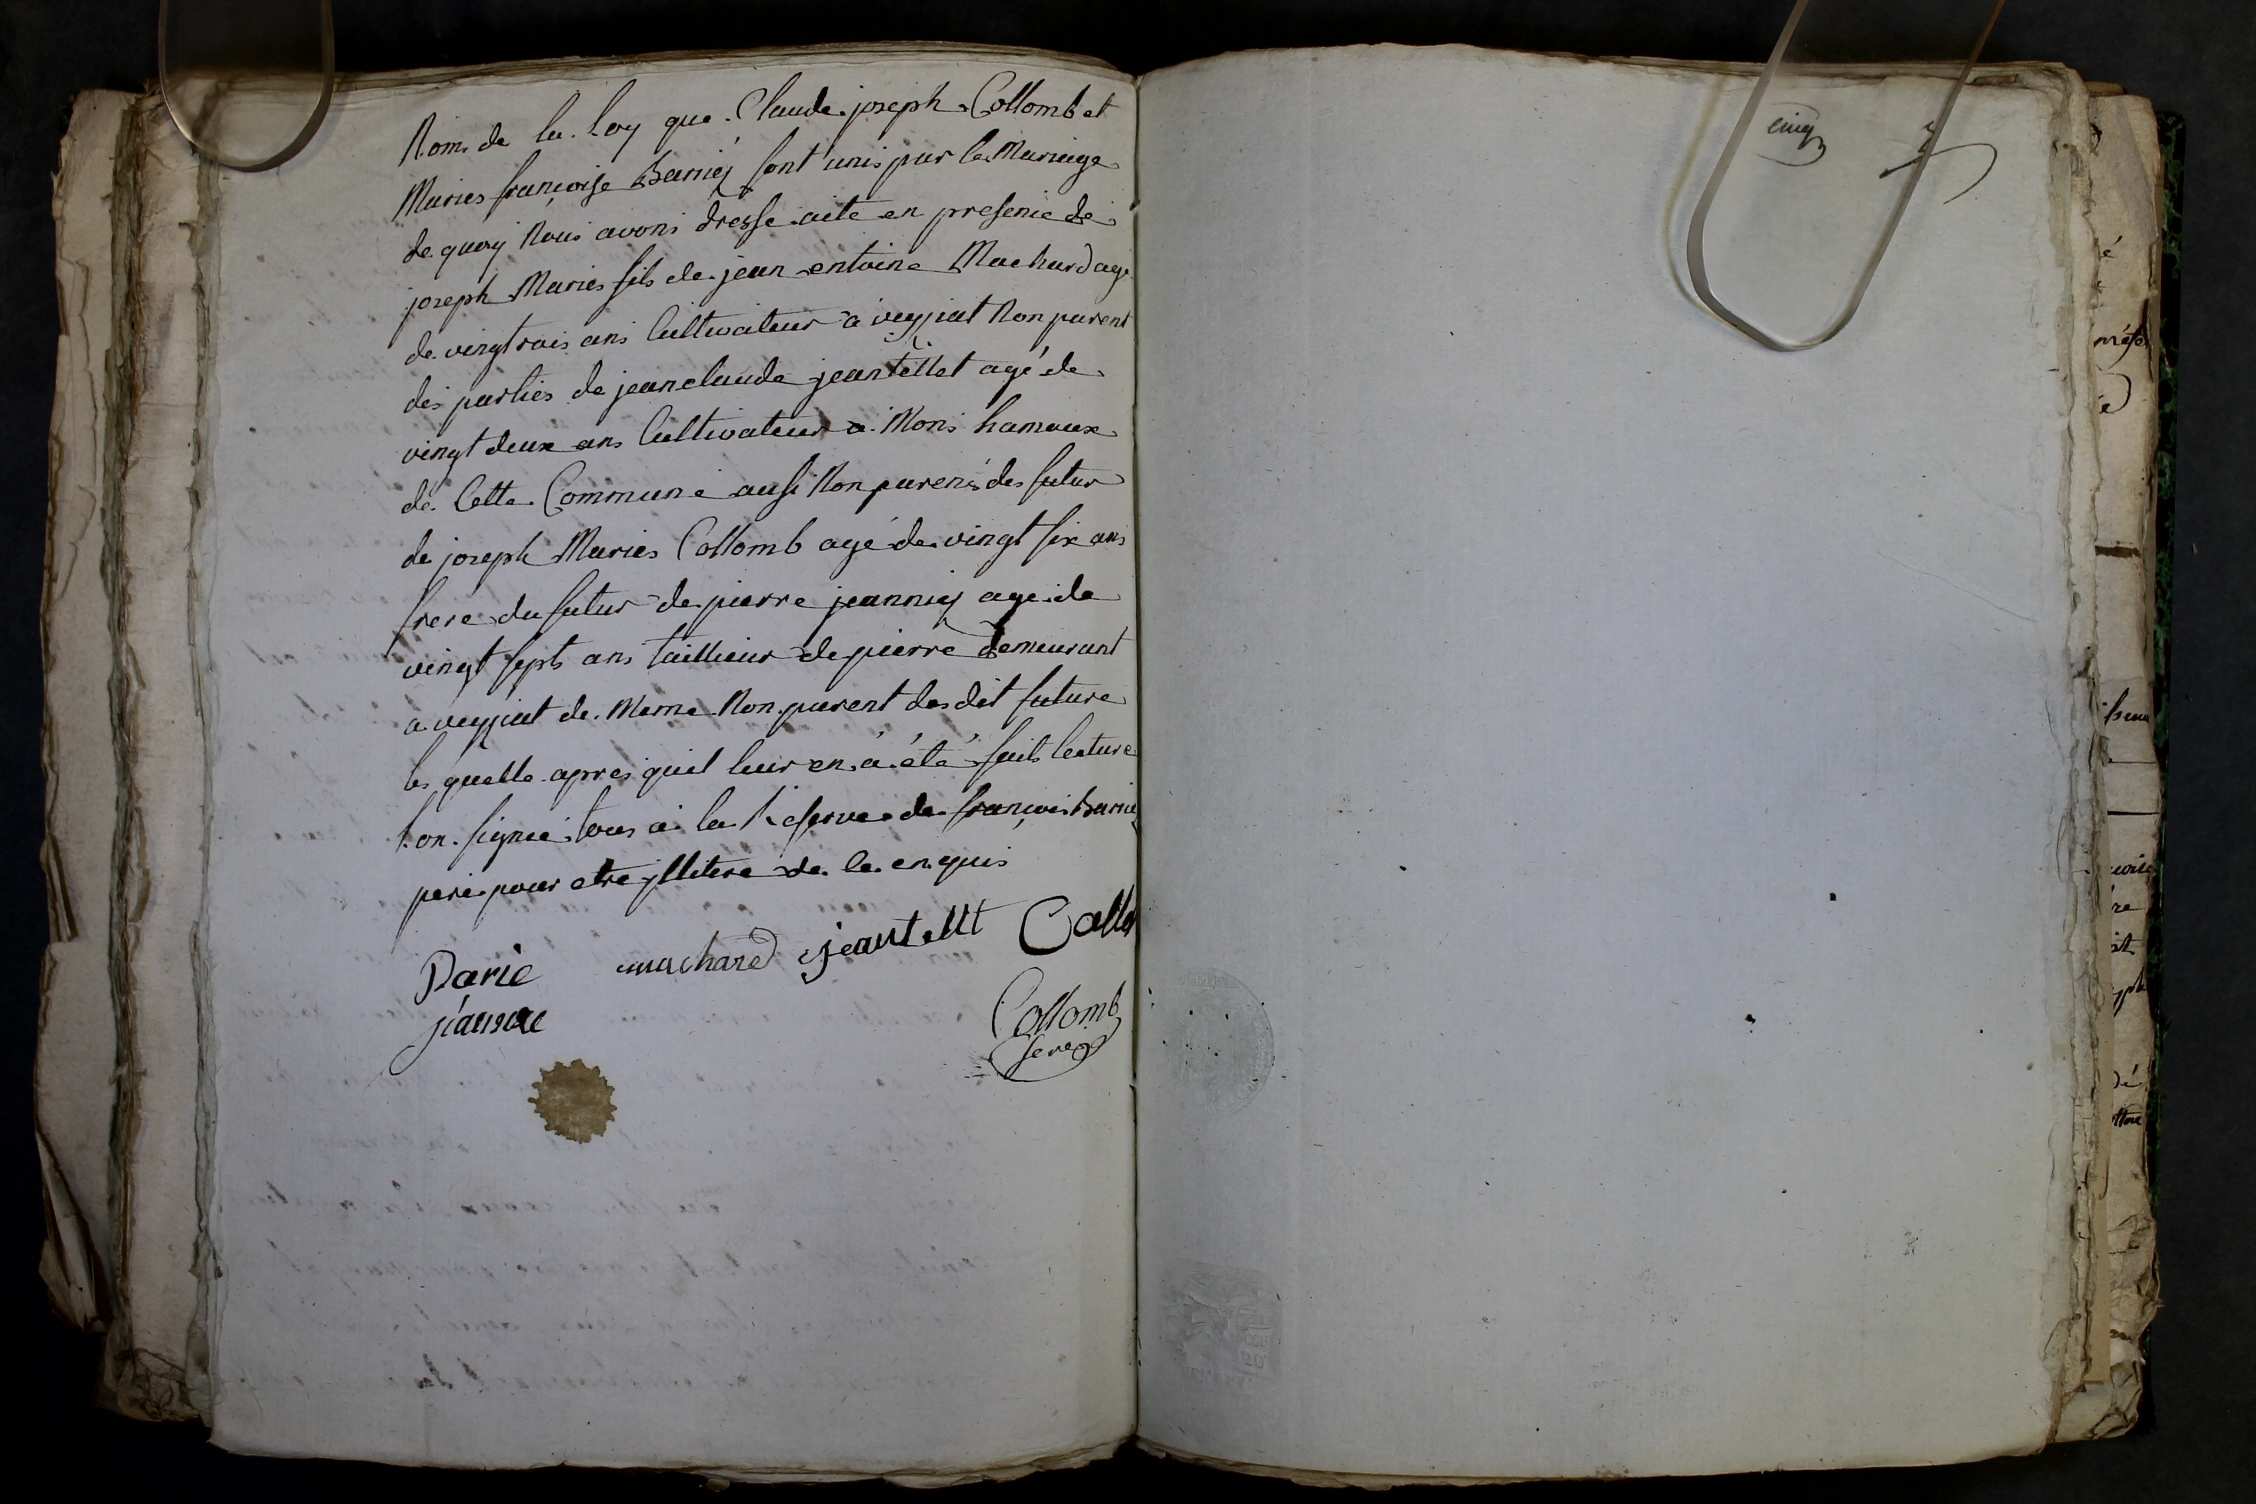 Nom de la Loy que Claude joseph Collomb et
Maries françoise Barriéj sont unis par le Mariage
de quoy Nous avons dressé acte en presence de
joseph Maries fils de jean entoine Machard age
de vingt rois ans Cultivateur a veyziat Non parent
des parties de jean claude jeantellet agé de
vingt deux ans Cultivateur a Mons hamaux
de Cette Commune ausi Non parens des futur
de joseph Maries Collomb agé de vingt six ans
frere du futur de pierre jeanniej agé de
vingt septs ans tailleur de pierre demeurant
a veyziat de Meme Non parent des dit future
les quelle apres quil leur en a été faits lecture
on signée tous a la Reserve de françois Barrié
pere pour etre yllitere de le enquis
Darie machard jeantellt Collo
jianne Collomb
cinq